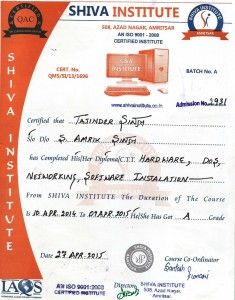 SHIVA INSTITUTE
508, AZAD NAGAR, AMRITSAR
AN ISO 9001 - 2008
CERTIFIED INSTITUTE
QAC
CERT. No.
QMS/SI/13/1696
BATCH No. A
www.shivainstitute.co.in
Admission No. 2981
SHIVA INSTITUTE
Certified that TAJINDER SINGH
S/o D/o S. AMRIK SINGH
has Completed His/Her Diploma/C.T.T. HARDWARE, DOS,
NETWORKING, SOFTWARE INSTALATION
From SHIVA INSTITUTE The Duration of The Course
Is 10 APR. 2014 To 09 APR 2015 He/She Has Got A Grade
Date 27 APR. 2015
Course Co-Ordinator
IAQS
AN ISO 9001:2008
CERTIFIED INSTITUTE
Director
SHIVA INSTITUTE
508, Azad Nagar,
Amritsar.